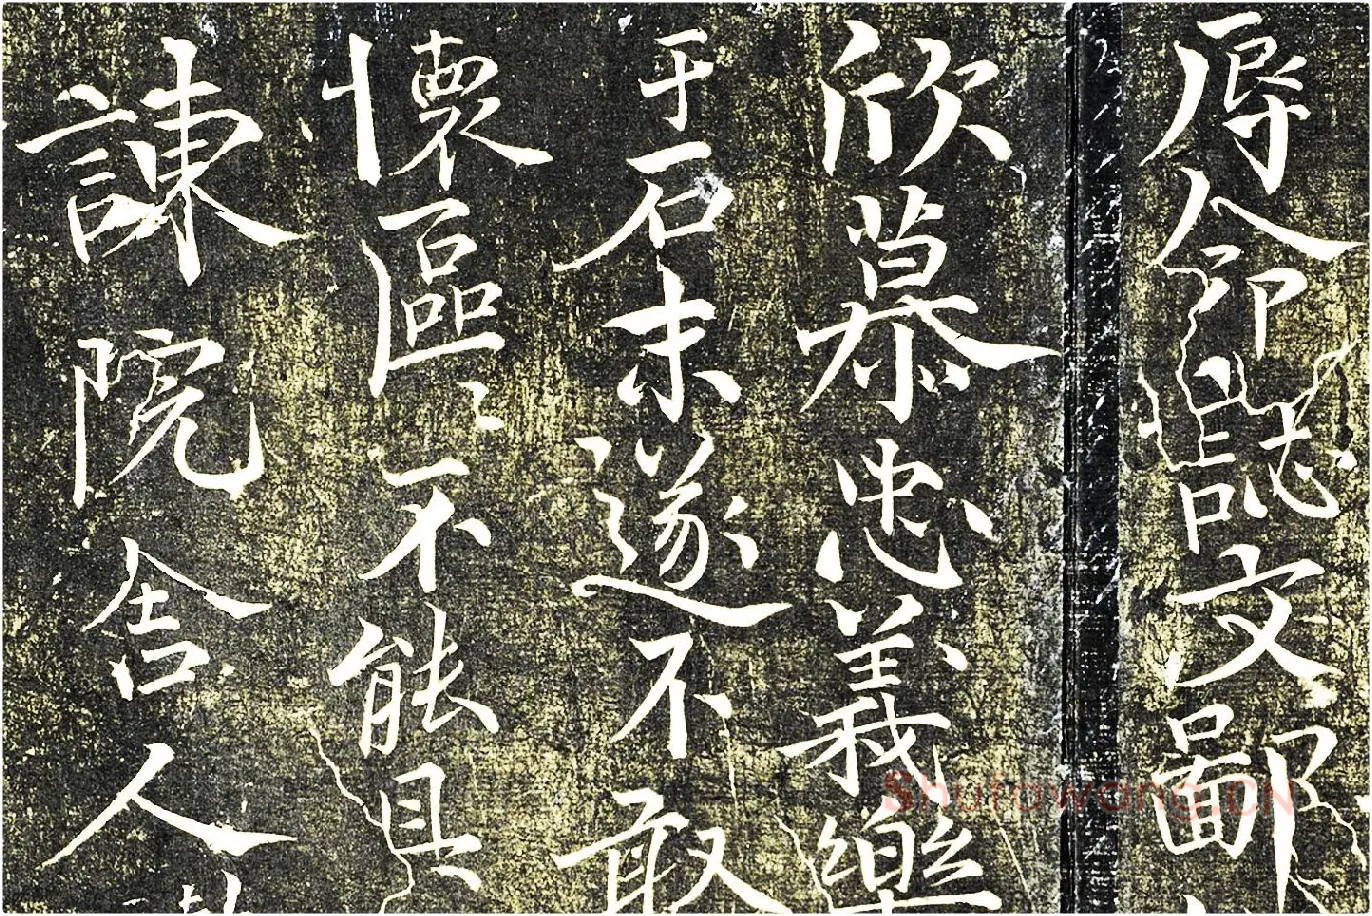 辱命誌文鄙
欣慕忠義樂
于石未遂不敢
懷區〻不能具
諫院舍人
Shufawang.CN